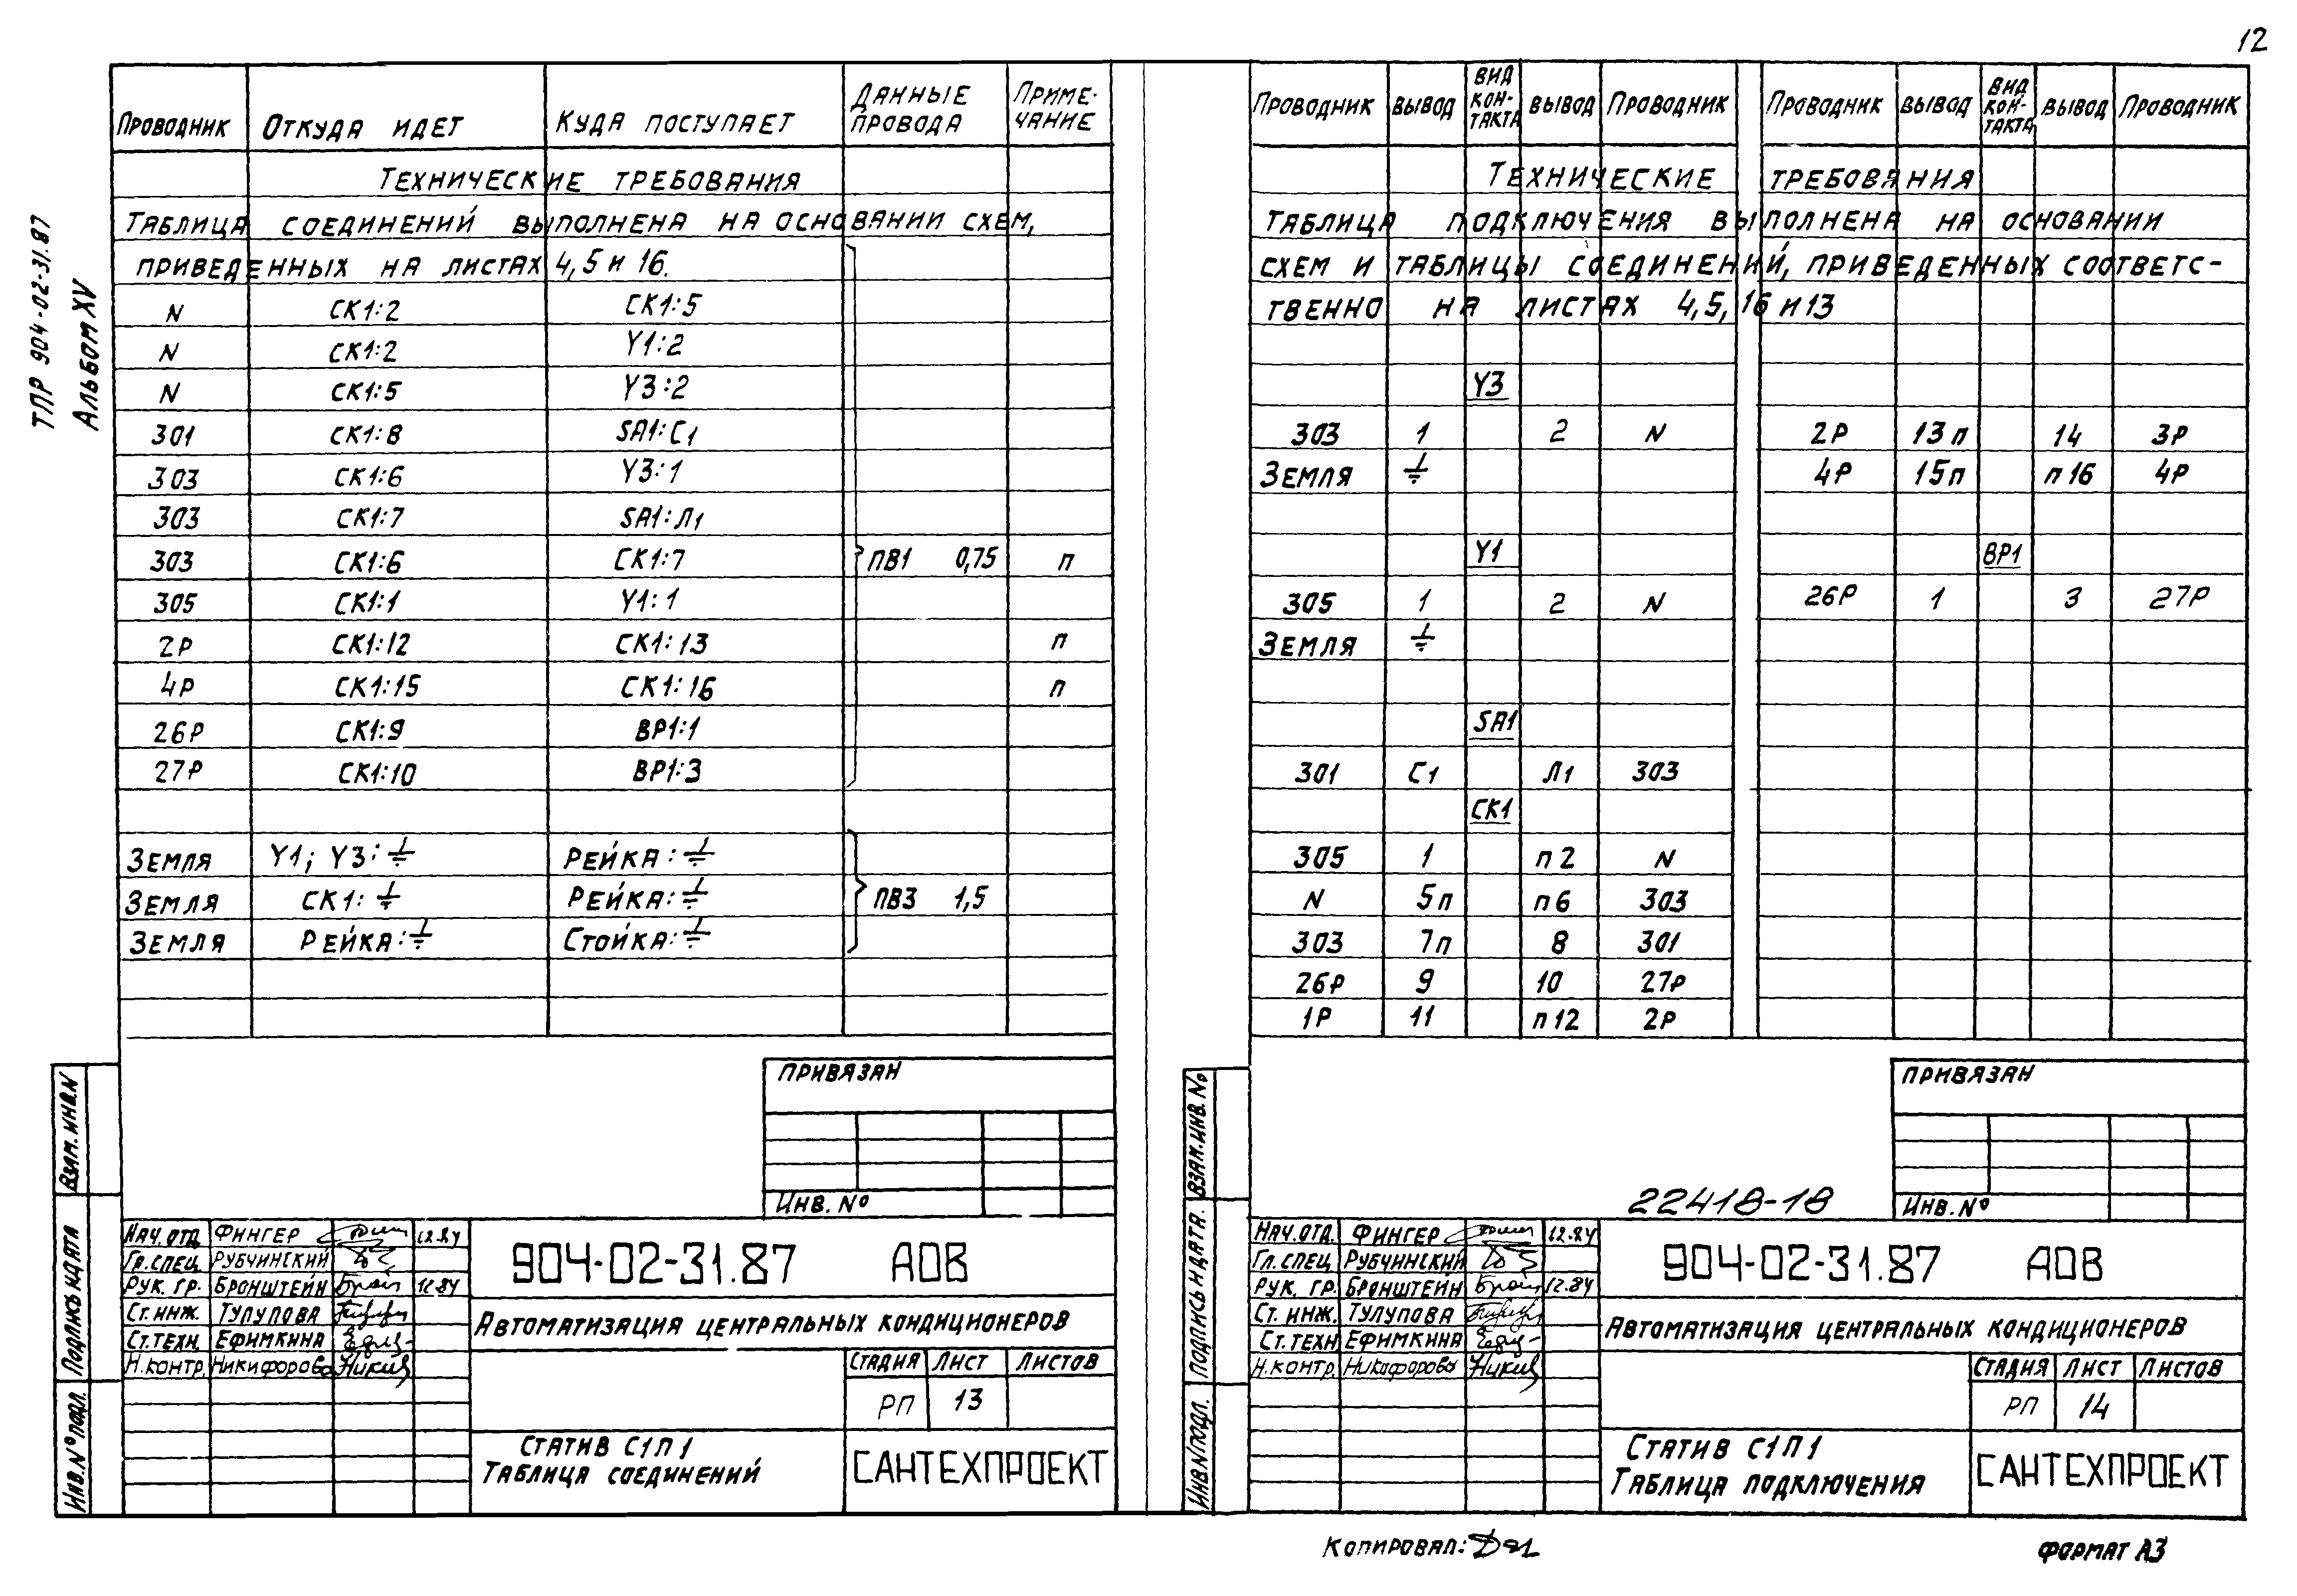 12
ТПР 904-02-31.87
Альбом XV
Проводник Откуда идет Куда поступает Данные провода Примечание
Технические требования
Таблица соединений выполнена на основании схем,
приведенных на листах 4,5 и 16.
N СК1:2 СК1:5
N СК1:2 Y1:2
N СК1:5 Y3:2
301 СК1:8 SA1:С1
303 СК1:6 Y3:1
303 СК1:7 SA1:Л1
303 СК1:6 СК1:7 ПВ1 0,75 п
305 СК1:1 Y1:1
2Р СК1:12 СК1:13 п
4Р СК1:15 СК1:16 п
26Р СК1:9 ВР1:1
27Р СК1:10 ВР1:3
Земля Y1; Y3:⏚ Рейка:⏚
Земля СК1:⏚ Рейка:⏚ ПВ3 1,5
Земля Рейка:⏚ Стойка:⏚
Привязан
Инв. №
Взам. инв.N
Подпись и дата
Инв.№ подл.
Нач.отд Фингер 12.84
Гл.спец. Рубчинский
Рук. гр. Бронштейн 12.84
Ст.инж. Тулупова
Ст.техн. Ефимкина
Н.контр. Никифорова
904-02-31.87 АОВ
Автоматизация центральных кондиционеров
Стадия Лист Листов
РП 13
Статив С1П1
Таблица соединений
САНТЕХПРОЕКТ
Проводник Вывод Вид контакта Вывод Проводник Проводник Вывод Вид контакта Вывод Проводник
Технические требования
Таблица подключения выполнена на основании
схем и таблицы соединений, приведенных соответс-
твенно на листах 4,5,16 и 13
Y3
303 1 2 N 2Р 13п 14 3Р
Земля ⏚ 4Р 15п п16 4Р
Y1 ВР1
305 1 2 N 26Р 1 3 27Р
Земля ⏚
SA1
301 С1 Л1 303
СК1
305 1 п2 N
N 5п п6 303
303 7п 8 301
26Р 9 10 27Р
1Р 11 п12 2Р
Привязан
Инв. №
22418-18
Взам.инв. №
Подпись и дата.
Инв.N подл.
Нач.отд. Фингер 12.84
Гл.спец Рубчинский
Рук. гр. Бронштейн 12.84
Ст. инж. Тулупова
Ст.техн Ефимкина
Н.контр. Никифорова
904-02-31.87 АОВ
Автоматизация центральных кондиционеров
Стадия Лист Листов
РП 14
Статив С1П1
Таблица подключения
САНТЕХПРОЕКТ
Копировал:
Формат А3